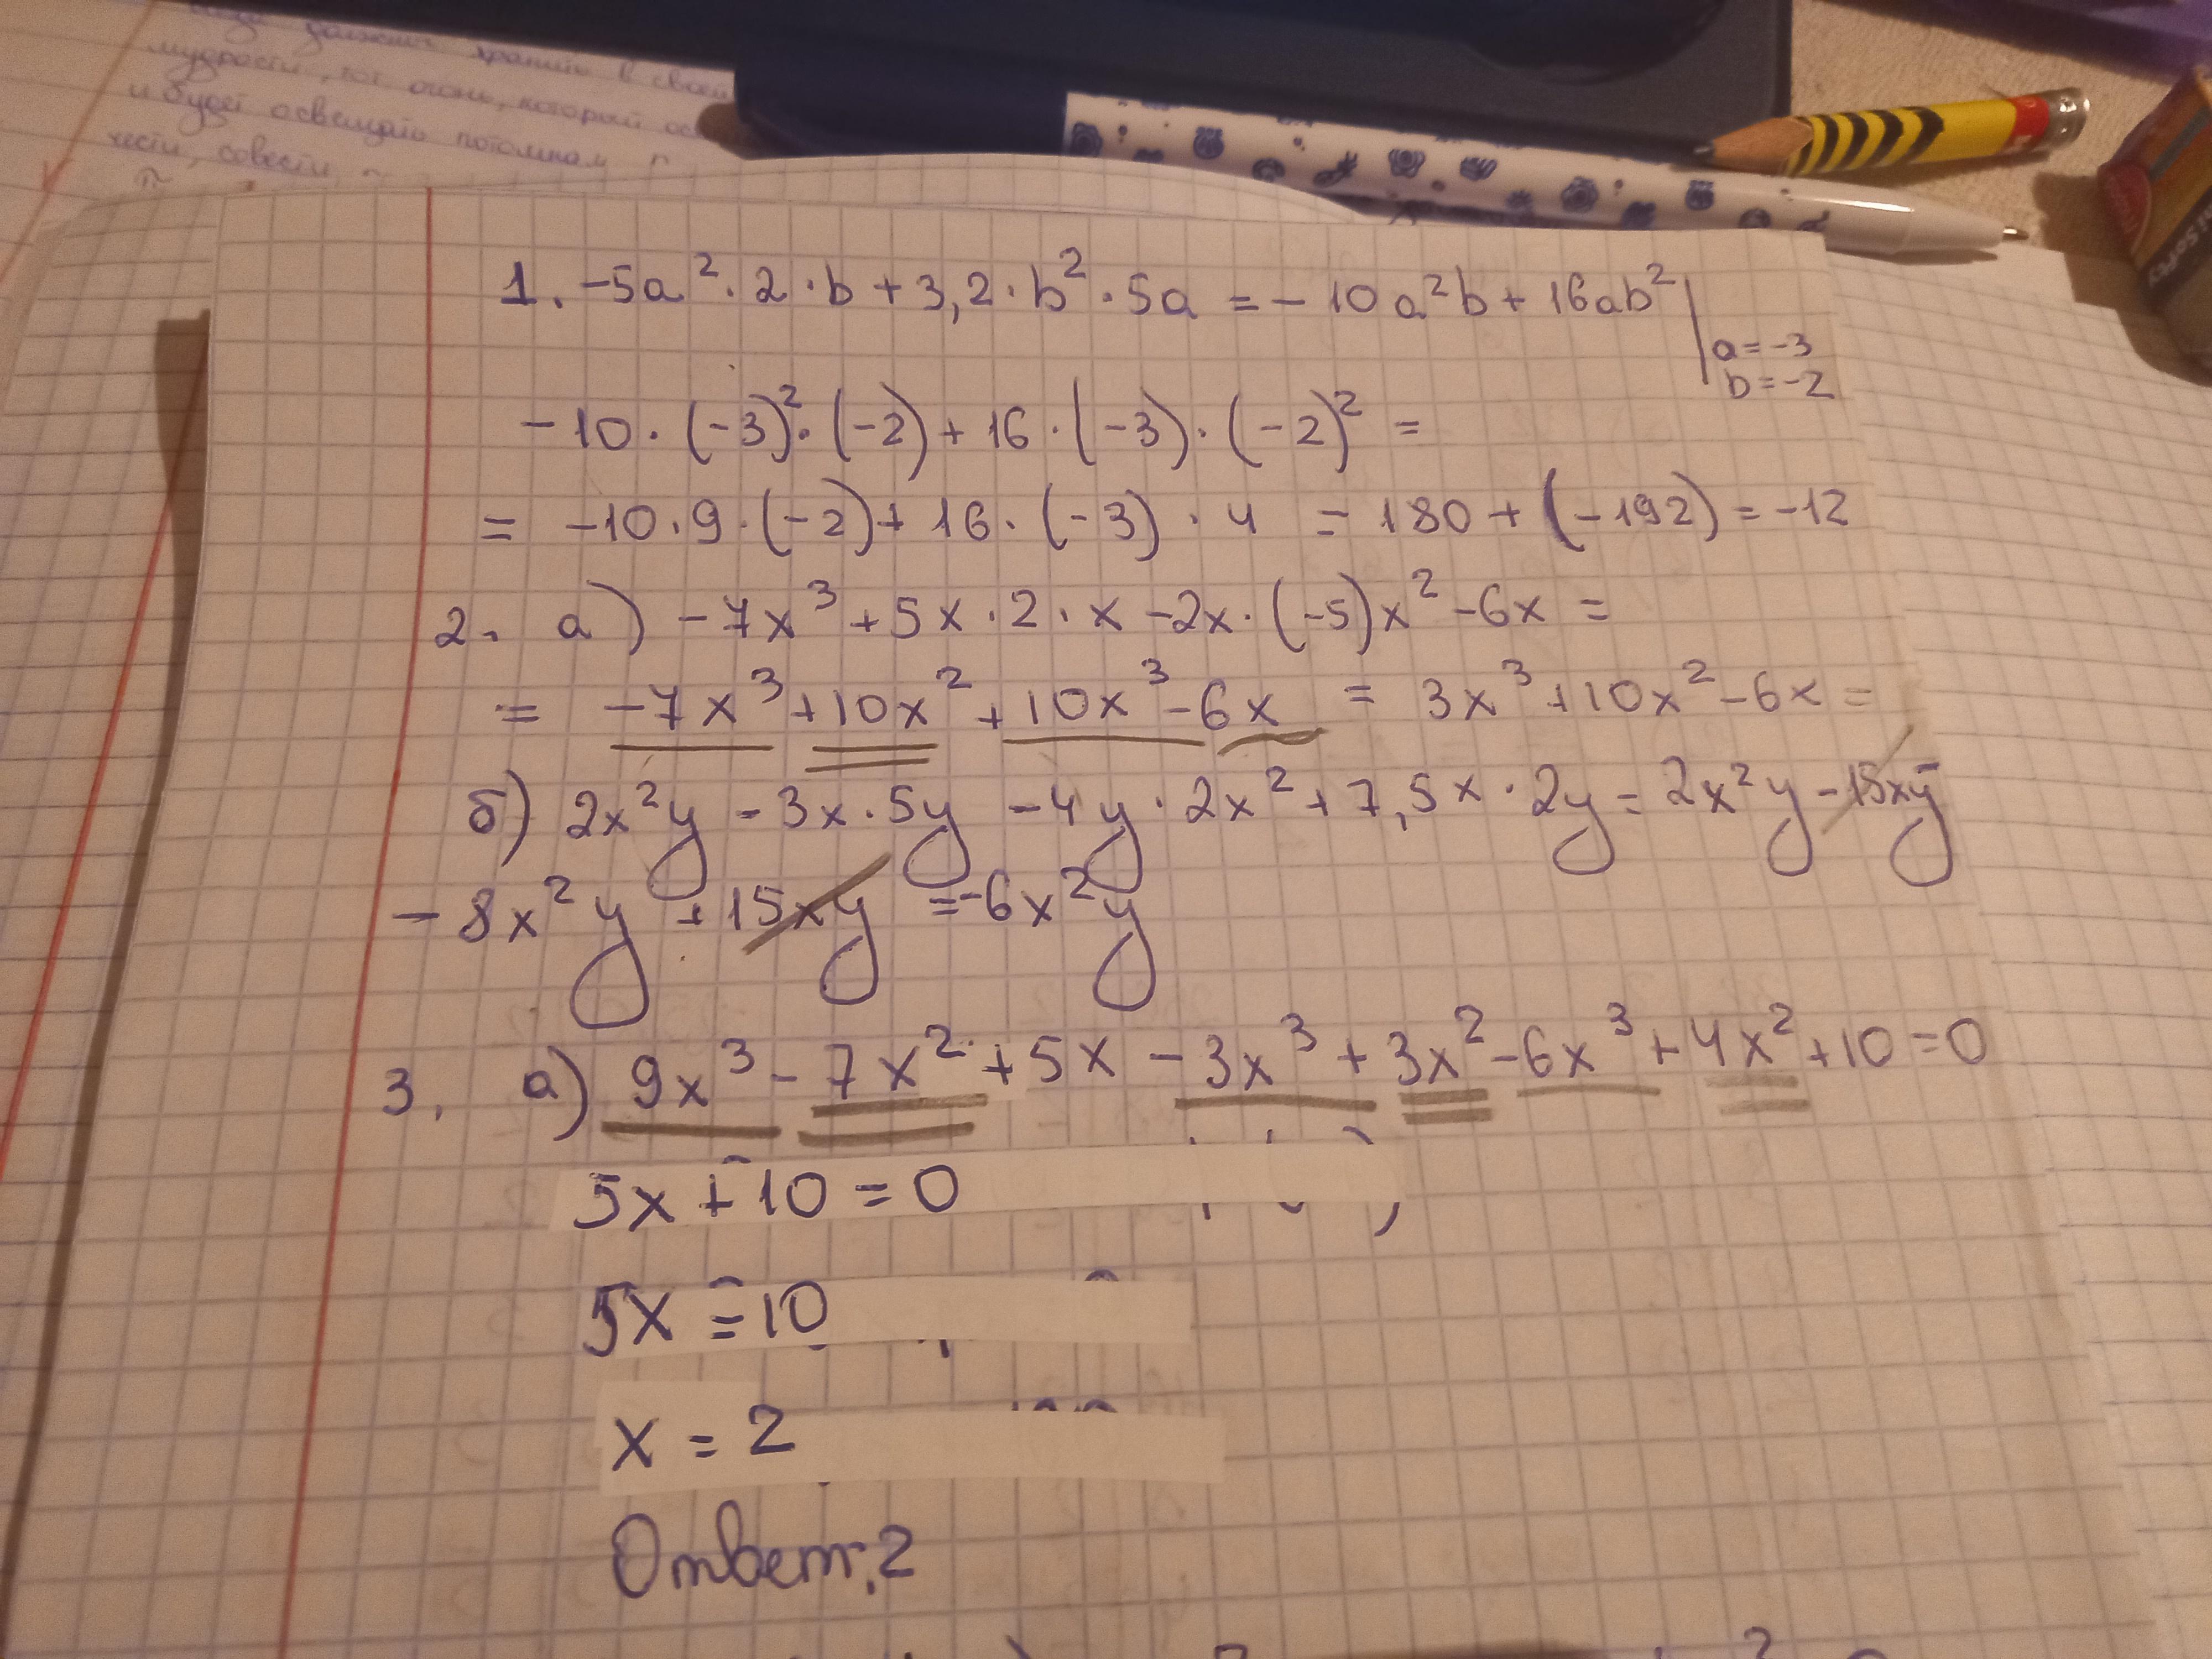 должны хранить в своей
мудрости, тот огонь, который
и будет освещать потомкам
чести, совести
1. -5a²·2·b+3,2·b²·5a = -10a²b+16ab² |
a=-3
b=-2
-10·(-3)²·(-2)+16·(-3)·(-2)² =
= -10·9·(-2)+16·(-3)·4 = 180+(-192)=-12
2. а) -7x³+5x·2·x-2x·(-5)x²-6x =
= -7x³+10x²+10x³-6x = 3x³+10x²-6x =
б) 2x²y-3x·5y-4y·2x²+7,5x·2y=2x²y-15xy
-8x²y+15xy=-6x²y
3. а) 9x³-7x²+5x-3x³+3x²-6x³+4x²+10=0
5x+10=0
5x=10
x=2
Ответ:2